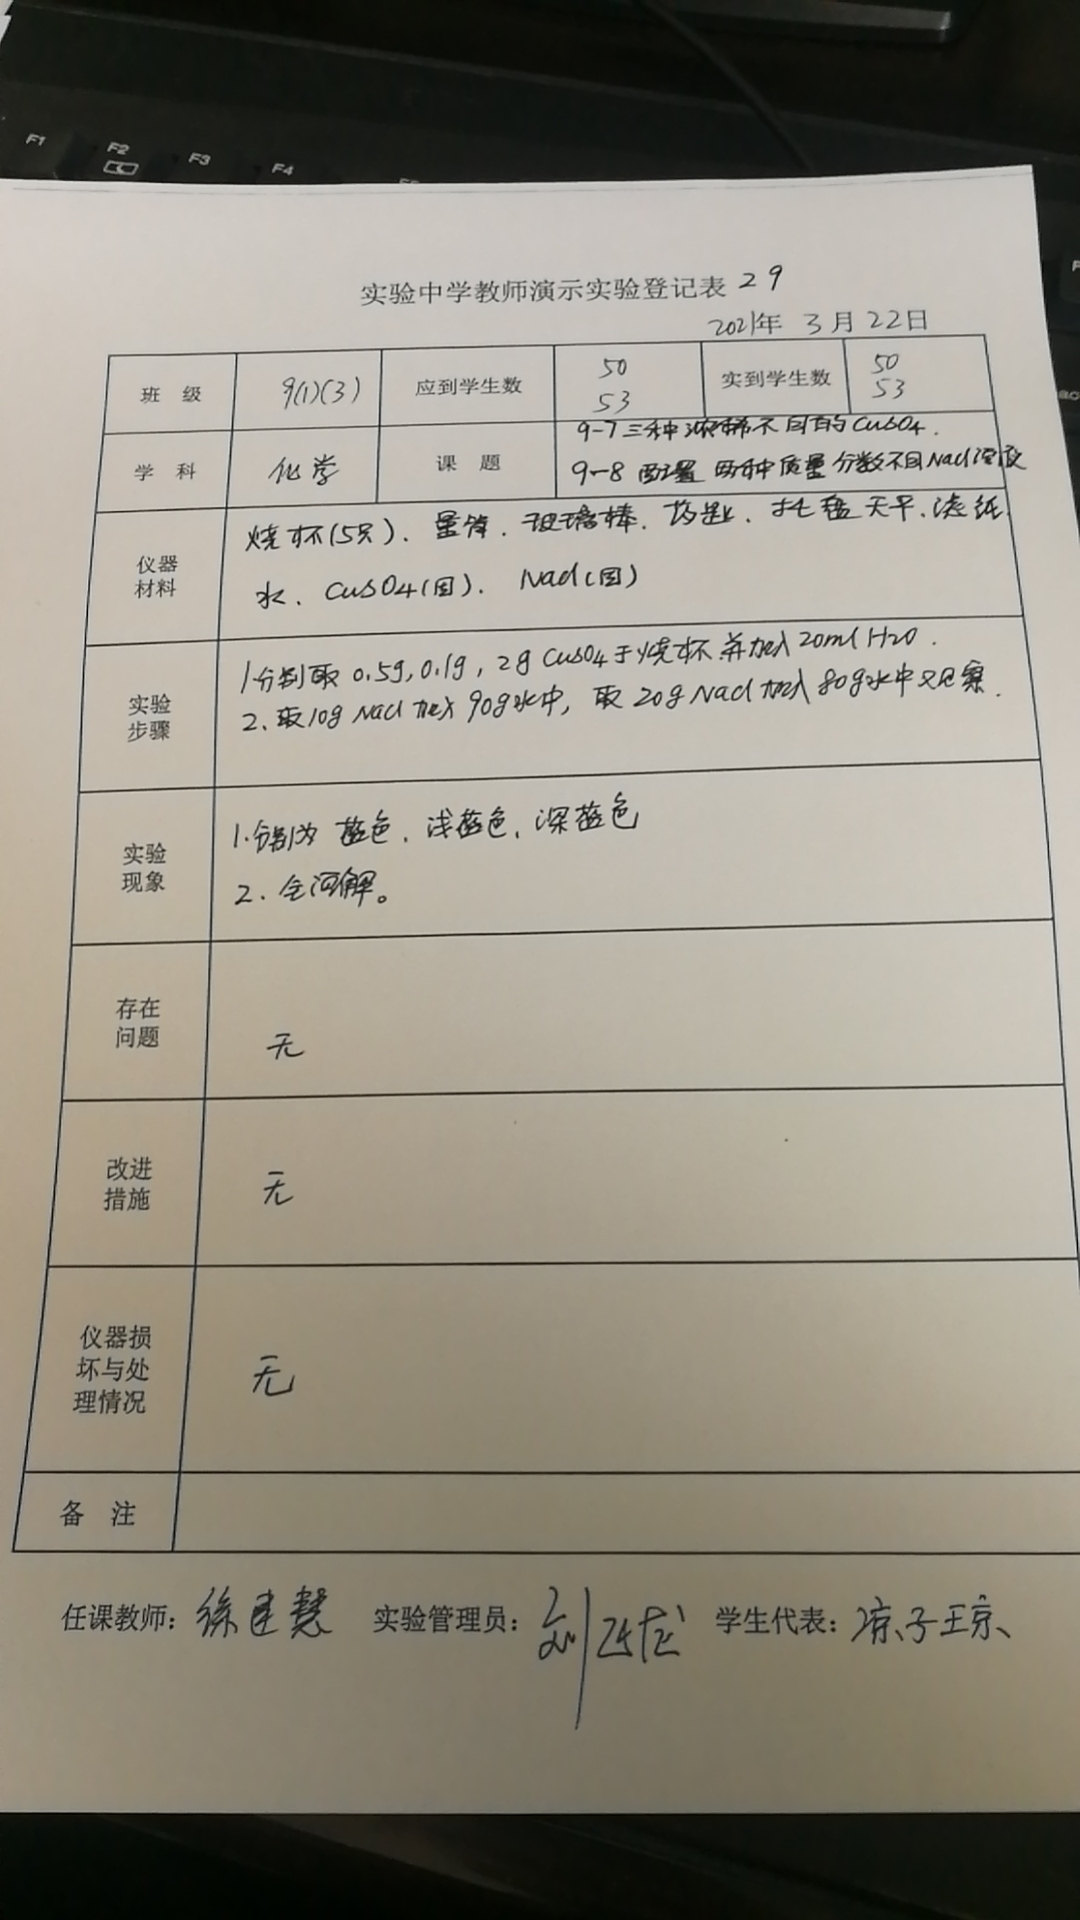 F1 F2 F3 F4
实验中学教师演示实验登记表 29
2021年 3月22日
班 级 9(1)(3) 应到学生数 50 53 实到学生数 50 53
学 科 化学 课 题 9-7三种浓稀不同的CuSO4.
9-8 配置 两种质量分数不同NaCl溶液
仪器材料 烧杯(5只)、量筒、玻璃棒、药匙、托盘天平、滤纸、
水、CuSO4(固)、NaCl(固)
实验步骤 1.分别取 0.5g,0.1g,2g CuSO4于烧杯并加入20ml H2O.
2、取10g NaCl加入90g水中,取20g NaCl加入80g水中观察.
实验现象 1.分别为 蓝色、浅蓝色、深蓝色
2.全溶解。
存在问题 无
改进措施 无
仪器损坏与处理情况 无
备 注
任课教师: 徐建慧 实验管理员: 刘 学生代表: